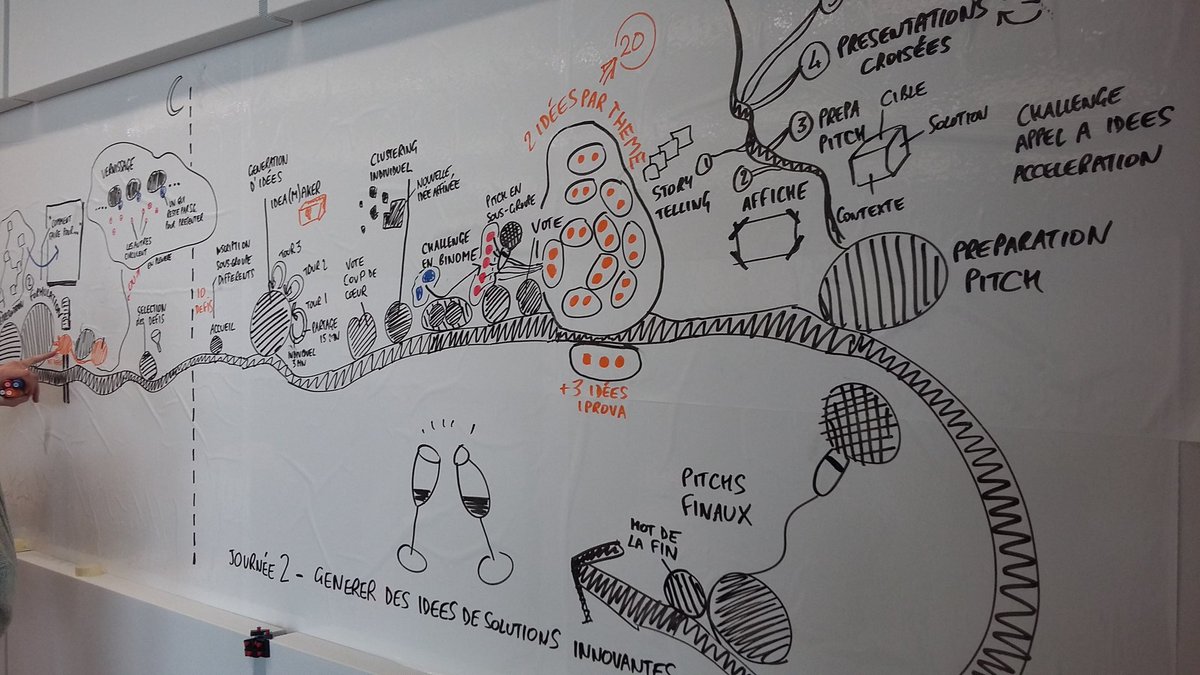 VERNISSAGE
UN QUI
RESTE PAR SG
POUR PRESENTER
LES AUTRES
CIRCULENT
"COMMENT
FAIRE POUR...
FORMULATION
SELECTION
des DEFIS
10
DEFIS
INSCRIPTION
SOUS-GROUPE
DIFFERENTS
ACCUEIL
GENERATION
D'IDÉES
IDEA(M)AKER
TOUR 3
TOUR 2
TOUR 1
PARTAGE
INDIVIDUEL
3 MN
VOTE
COUP DE
CŒUR
CLUSTERING
INDIVIDUEL
NOUVELLE,
IDÉE AFFINÉE
CHALLENGE
EN BINOME
PITCH EN
SOUS-GROUPE
VOTE
2 IDÉES PAR THEME
20
+3 IDÉES
1PROVA
STORY
TELLING
1
2
AFFICHE
3
PREPA
PITCH
4
PRESENTATIONS
CROISÉES
CIBLE
SOLUTION
CONTEXTE
CHALLENGE
APPEL A IDEES
ACCELERATION
PREPARATION
PITCH
PITCHS
FINAUX
MOT DE
LA FIN
JOURNÉE 2 - GENERER DES IDEES DE SOLUTIONS INNOVANTES